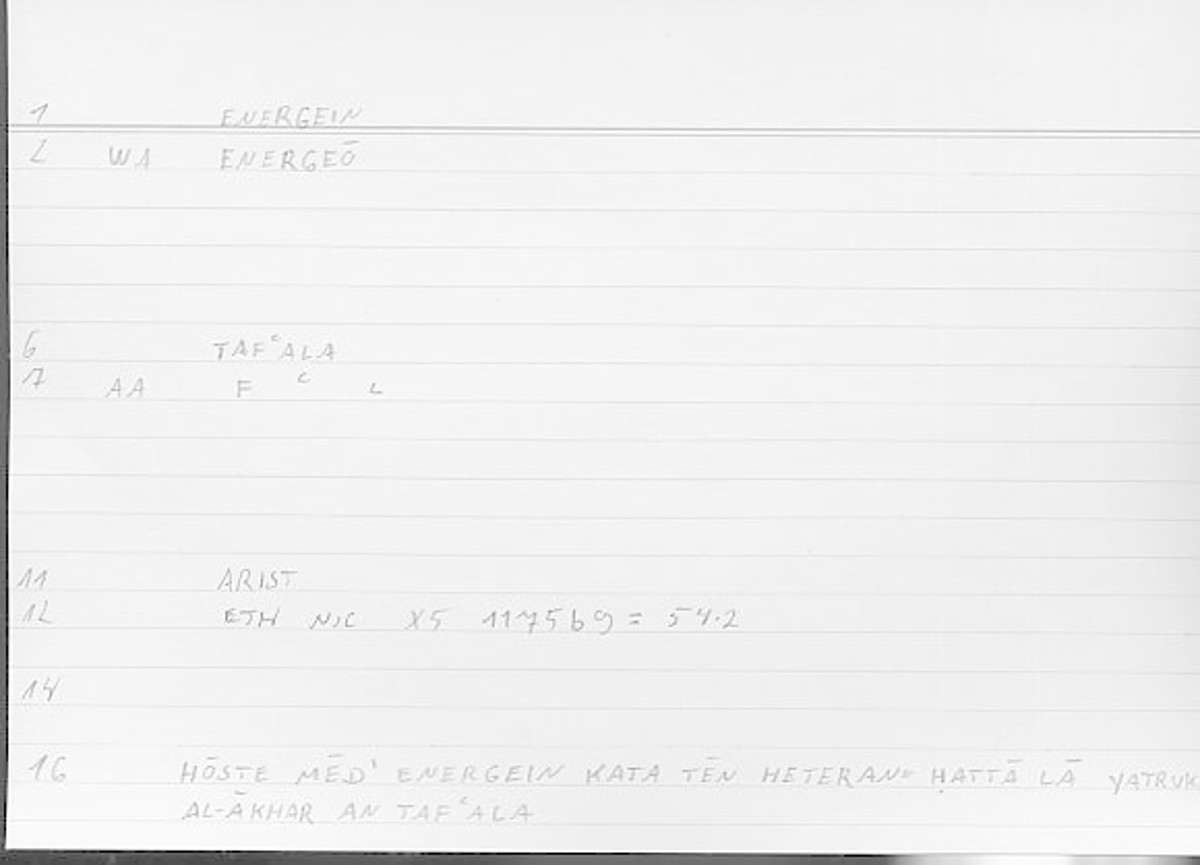 1 ENERGEIN
2 WA ENERGEŌ
6 TAFʿALA
7 AA F ʿ L
11 ARIST
12 ETH NIC X5 1175b9 = 54.2
14
16 HŌSTE MĒD' ENERGEIN KATA TĒN HETERAN= ḤATTĀ LĀ YATRUK
AL-ĀKHAR AN TAFʿALA